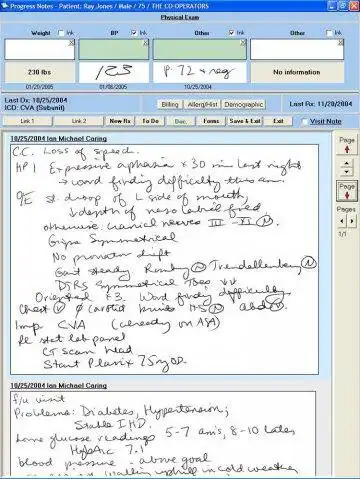 Progress Notes - Patient: Ray Jones / Male / 75 / THE CO-OPERATORS
Physical Exam
Weight Ink BP Ink Other Ink Other Ink
230 lbs P 72 reg No information
01/20/2005 01/08/2005 10/25/2004
Last Dx: 10/25/2004
ICD: CVA (Subunit)
Billing Allerg/Hist Demographic
Last Rx: 11/20/2004
Link 1 Link 2 New Rx To Do Doc. Forms Save & Exit Exit Visit Note
10/25/2004 Ian Michael Caring
C.C. Loss of speech.
HPI Expressive aphasia x 30 min last night
→ word finding difficulty this am.
O/E sl. droop of L side of mouth,
↓ depth of nasolabial fold
otherwise cranial nerves III - XI N
Grips Symmetrical
No pronator drift
Gait steady Romberg N Trendellenberg N
DTRS Symmetrical Toes ↓↓
Oriented x 3. Word finding difficulty
Chest Ø carotid bruits HS N abd N
Imp CVA (already on ASA)
stat lab panel
CT scan head
Start Plavix 75mg OD.
Page
Page
Pages
1/1
10/25/2004 Ian Michael Caring
f/u visit
Problems: Diabetes, Hypertension,
Stable IHD.
home glucose readings 5-7 am's, 8-10 later
HgbA1c 7.1
blood pressure - above goal
walking uphill in cold weather